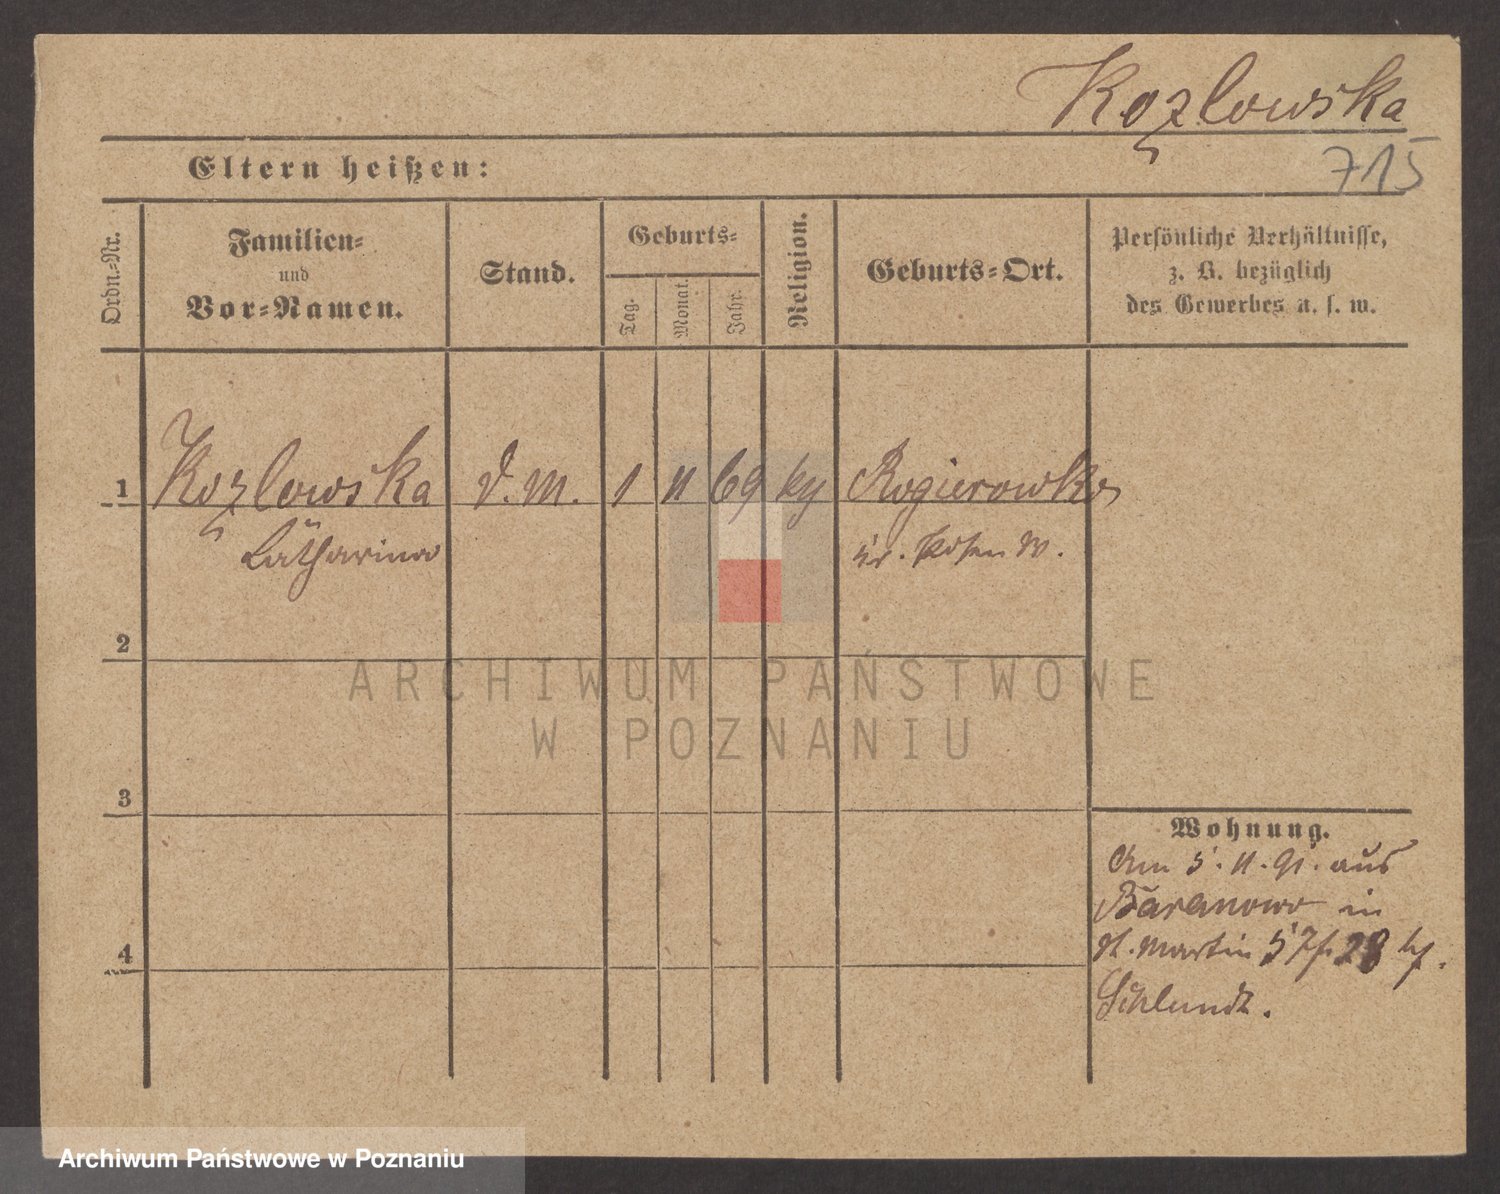 Kozlowska
715
Eltern heißen:
Ordn.=Nr.
Familien=
und
Vor=Namen.
Stand.
Geburts=
Tag.
Monat.
Jahr.
Religion.
Geburts=Ort.
Persönliche Verhältnisse,
z. B. bezüglich
des Gewerbes u. s. w.
1 Kozlowska D.M. 1 11 69 ky Rogierowko
Katharina Kr. Posen W.
2
ARCHIWUM PAŃSTWOWE
W POZNANIU
3
Wohnung.
Am 5. 11. 91. aus
Baranowo in
St. Martin 57 28
4
Schlundt.
Archiwum Państwowe w Poznaniu